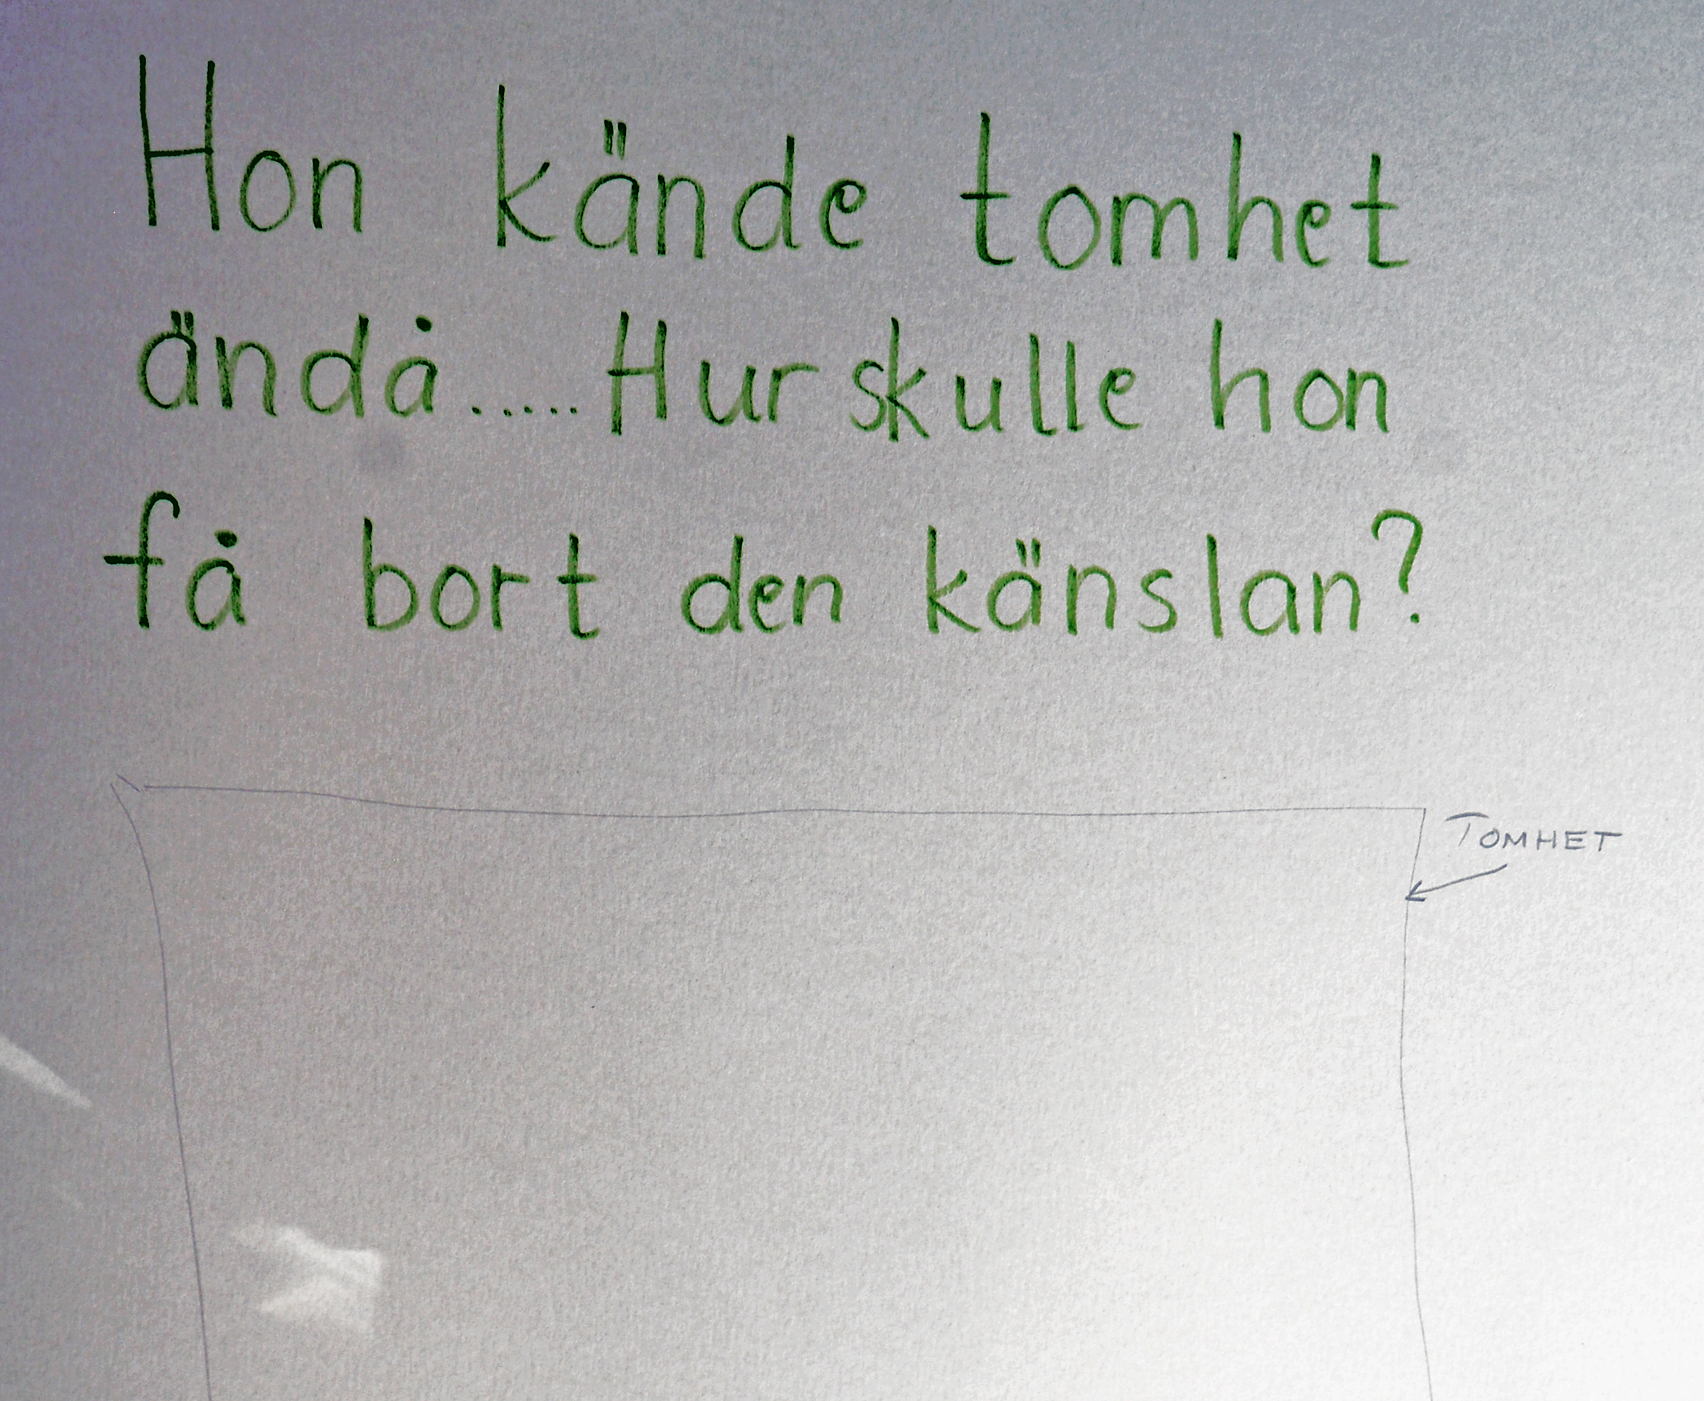 Hon kände tomhet
ändå..... Hur skulle hon
få bort den känslan?
TOMHET